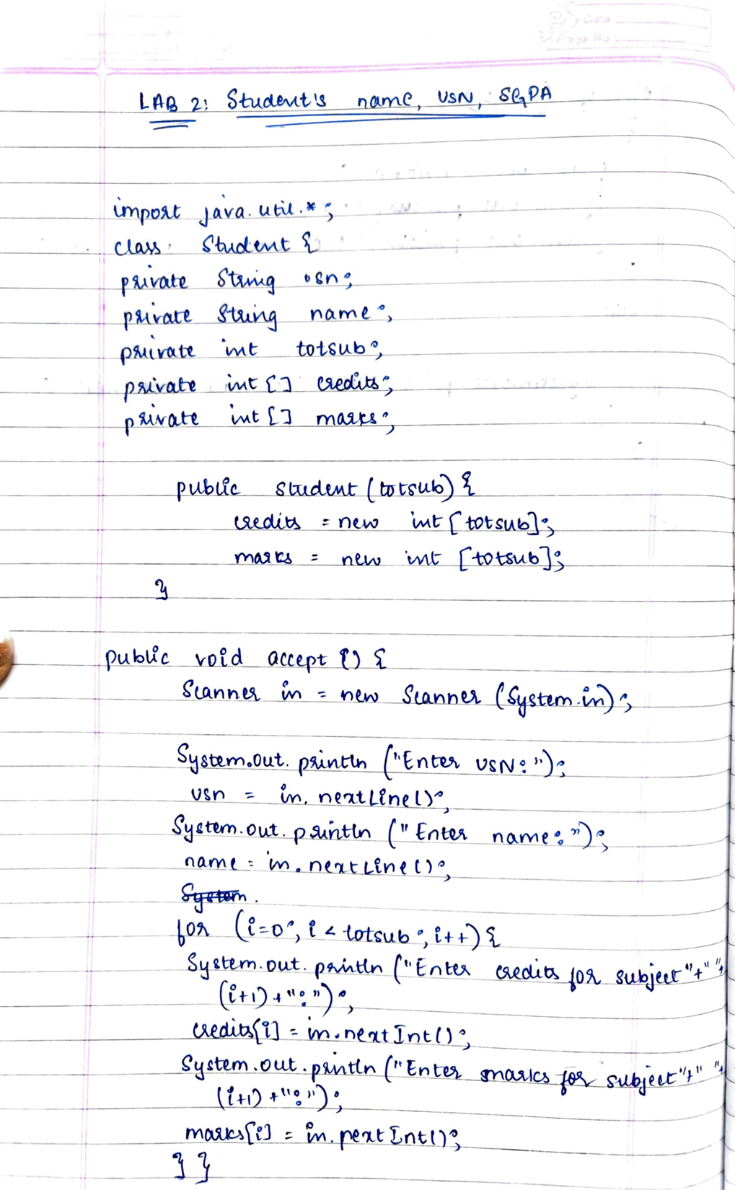 LAB 2: Student's name, USN, SGPA
import java.util.*;
class Student {
private String usn;
private String name;
private int totsub;
private int [] credits;
private int [] marks;
public student (totsub) {
credits = new int [totsub];
marks = new int [totsub];
}
public void accept () {
Scanner in = new Scanner (System.in);
System.out.println ("Enter USN:");
usn = in.nextLine();
System.out.println ("Enter name:");
name = in.nextLine();
System.
for (i=0; i < totsub; i++) {
System.out.println ("Enter credits for subject"+" "+
(i+1)+":");
credits[i] = in.nextInt();
System.out.println ("Enter marks for subject"+" "+
(i+1)+":");
marks[i] = in.nextInt();
} }